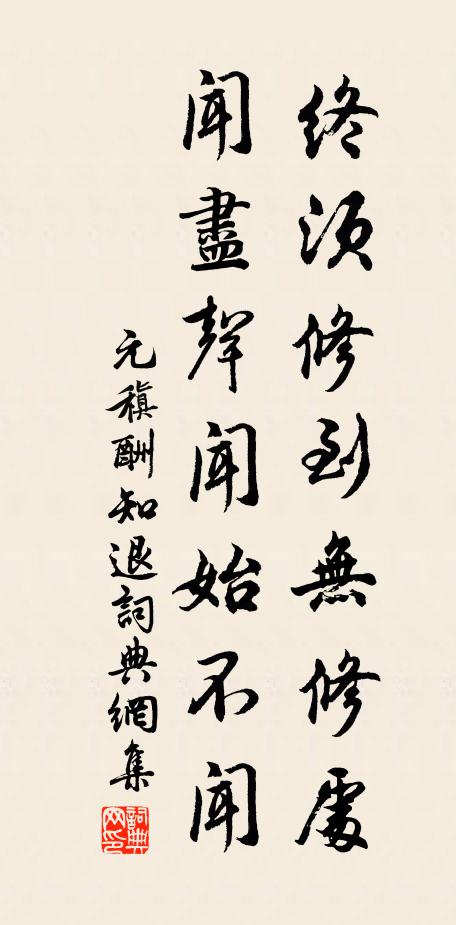 終須修到無修處
聞盡聲聞始不聞
元稹酬知退詞典網集
詞典
网印